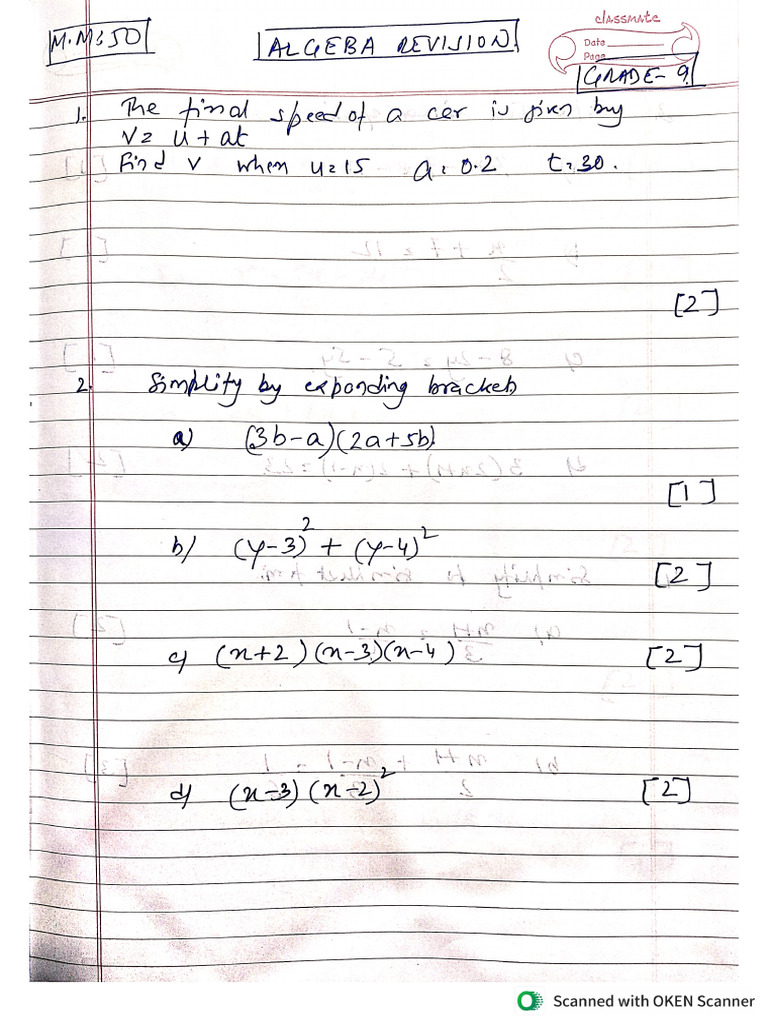 M.M:50
ALGEBA REVISION
classmate
Date
Page
GRADE-9
1. The final speed of a car is given by
v= u + at
Find v when u=15 a= 0.2 t=30.
[2]
2. Simplify by expanding brackets
a) (3b-a)(2a+5b)
[1]
b) (y-3)² + (y-4)²
[2]
c) (x+2)(x-3)(x-4) [2]
d) (x-3)(x-2)² [2]
Scanned with OKEN Scanner